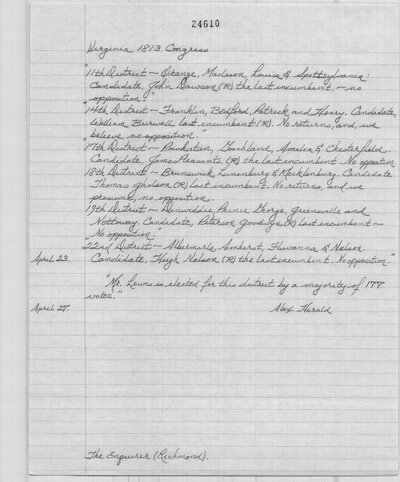 24610
Virginia 1813 Congress
"11th District - Orange, Madison, Louisa & Spottsylvania:
Candidate, John Dawson (R) the last incumbent, - no
opposition."
"14th District - Franklin, Bedford, Patrick and Henry. Candidate,
William Burwell last incumbent (R). No returns, and, we
believe, no opposition."
"17th District - Powhatan, Goochland, Amelia & Chesterfield.
Candidate, James Pleasants, (R) the last incumbent. No opposition
18th District - Brunswick, Lunenburg & Mecklenburg. Candidate
Thomas Gholson (R) last incumbent. No returns, and we
presume, no opposition.
19th District - Dinwiddie, Prince George, Greensville and
Nottoway. Candidate, Peterson Goodwyn (R) last incumbent -
No opposition."
"22nd District - Albermarle, Amherst, Fluvanna & Nelson
April 23. Candidate, Hugh Nelson (R) the last incumbent. No opposition."
"Mr. Lewis is elected for this district by a majority of 177
votes."
April 27. Alex. Herald
The Enquirer (Richmond).